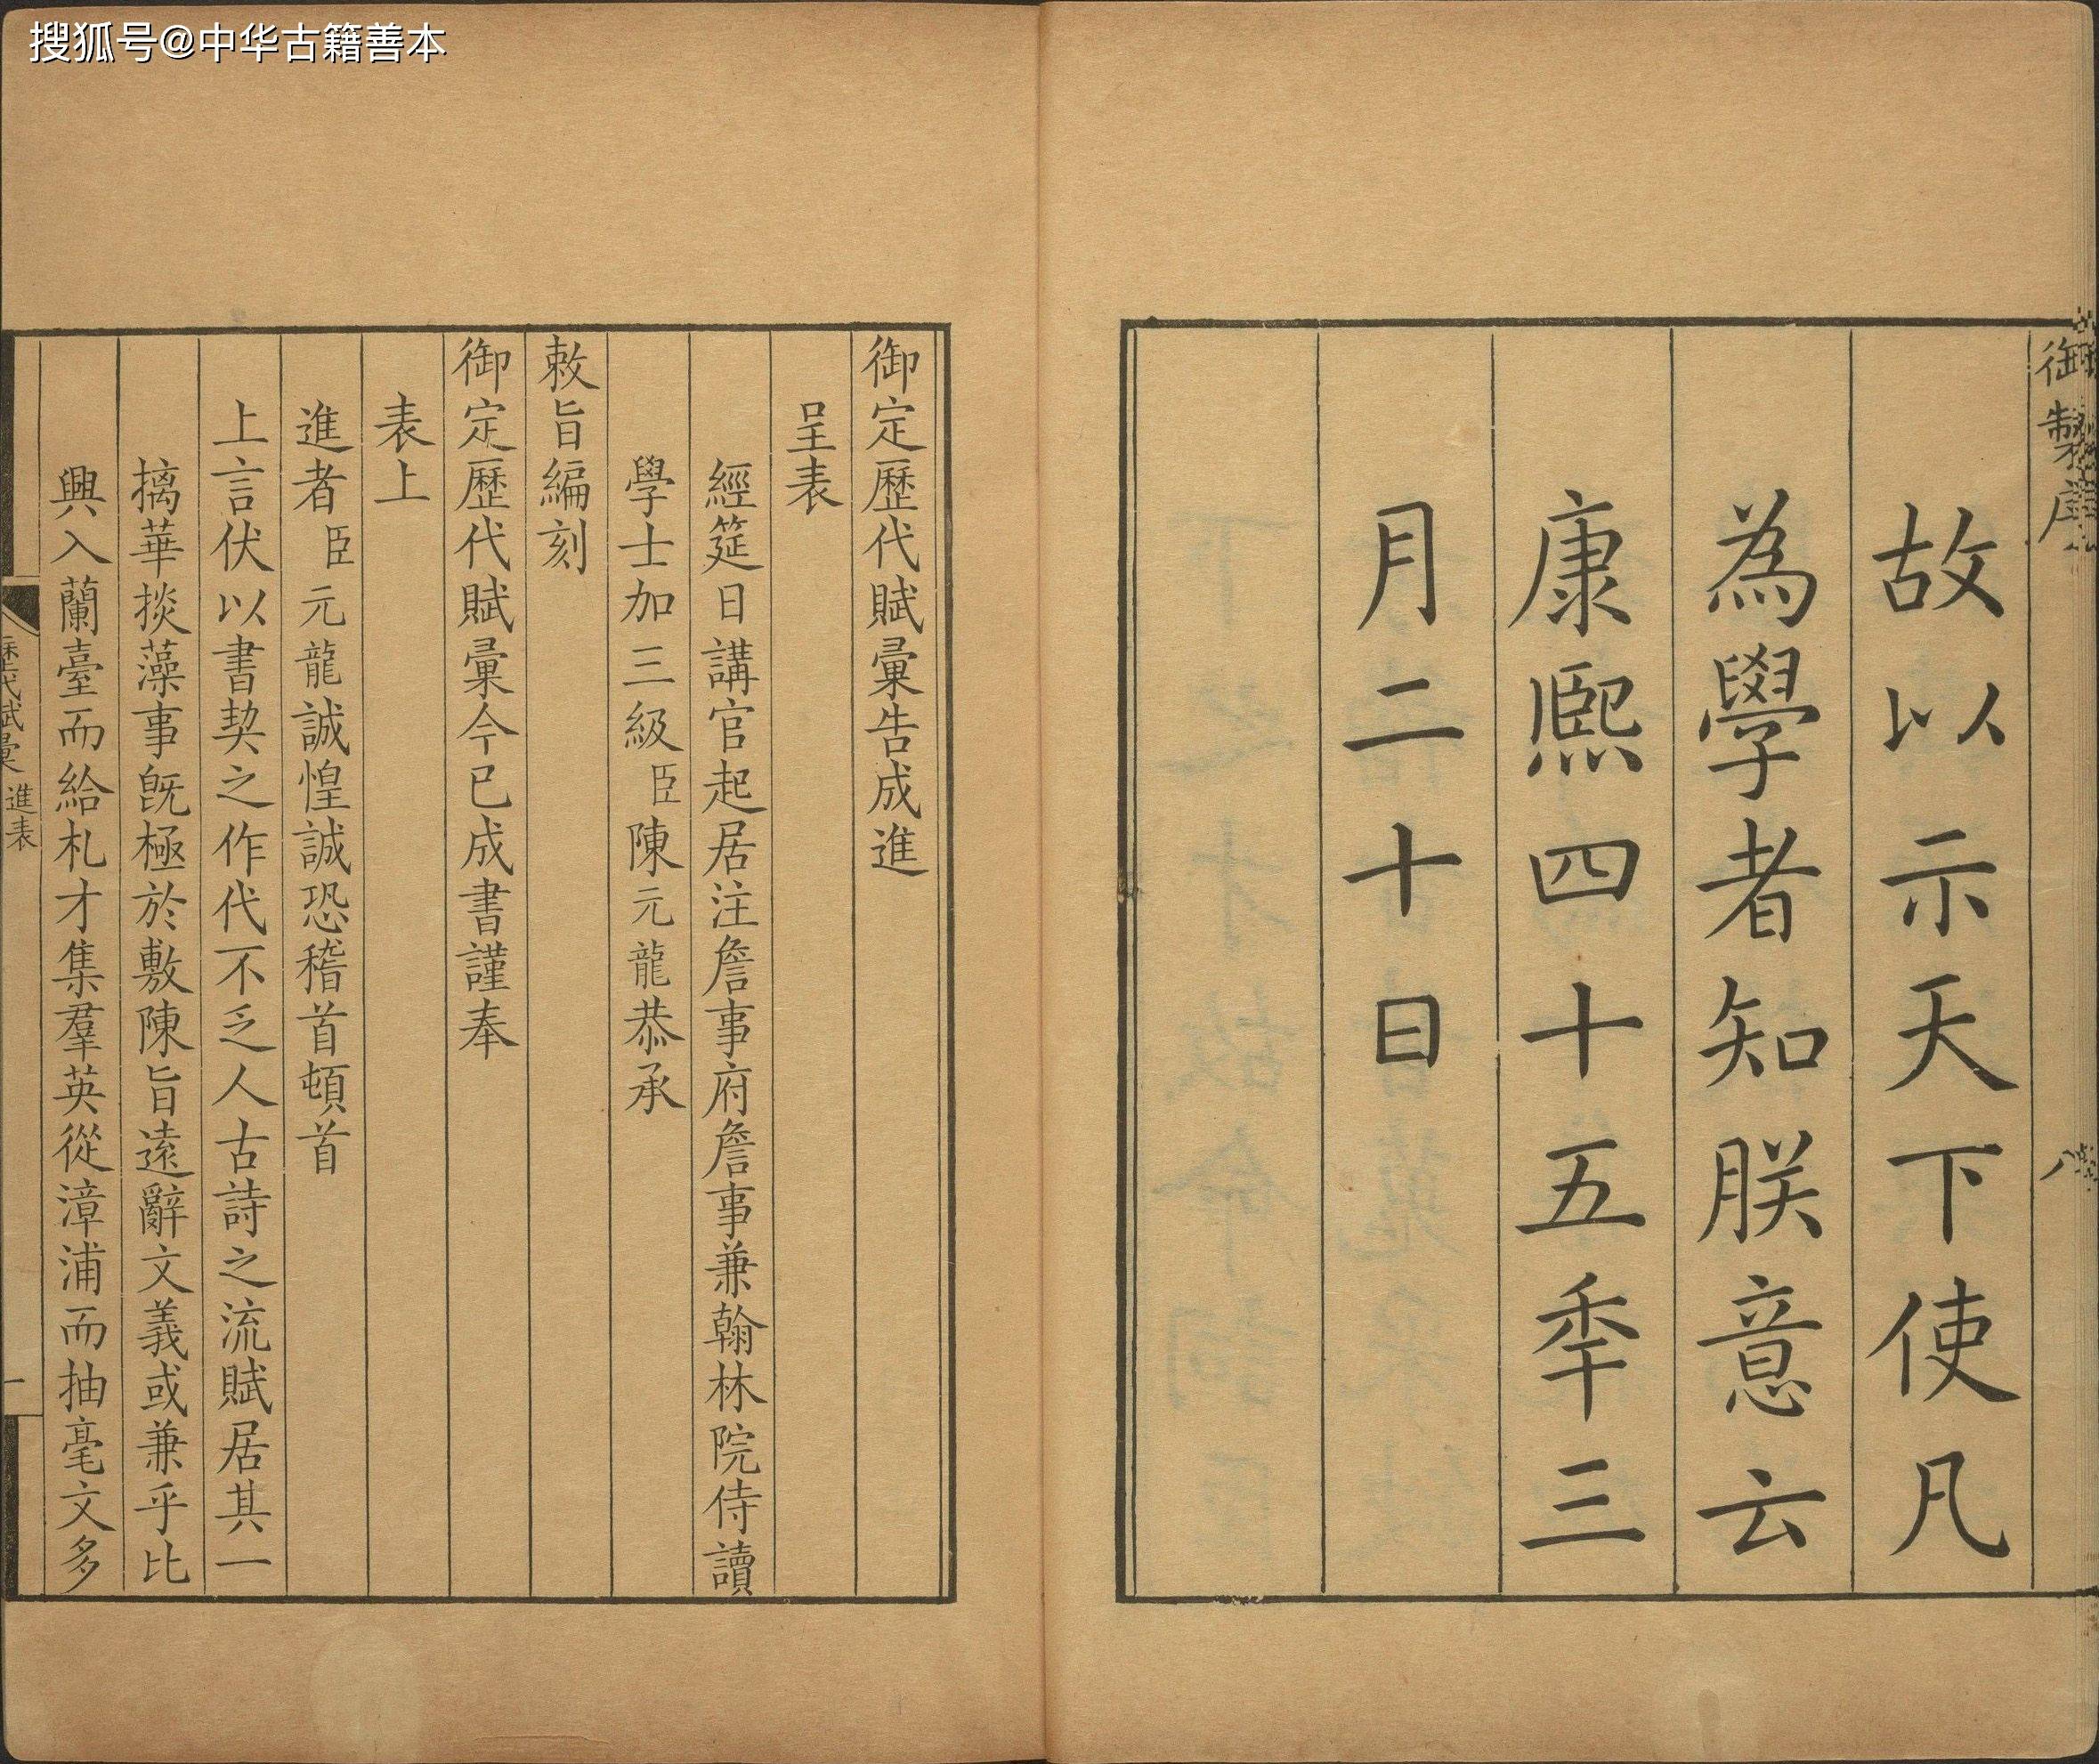 搜狐号@中华古籍善本
御製序
八
故以示天下使凡
為學者知朕意云
康熙四十五秊三
月二十日
御定歷代賦彙告成進
呈表
經筵日講官起居注詹事府詹事兼翰林院侍讀
學士加三級臣陳元龍恭承
敕旨編刻
御定歷代賦彙今已成書謹奉
表上
進者臣元龍誠惶誠恐稽首頓首
上言伏以書契之作代不乏人古詩之流賦居其一
摛華掞藻事旣極於敷陳旨遠辭文義或兼乎比
興入蘭臺而給札才集羣英從漳浦而抽毫文多
歷代賦彙 進表
一